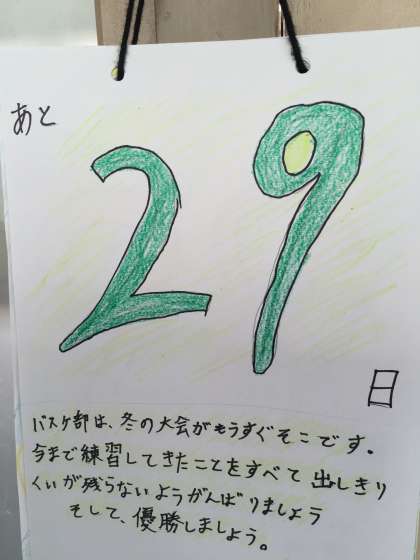 あと
29
日
バスケ部は、冬の大会がもうすぐそこです。
今まで練習してきたことをすべて出しきり
くいが残らないようがんばりましよう
そして、優勝しましょう。